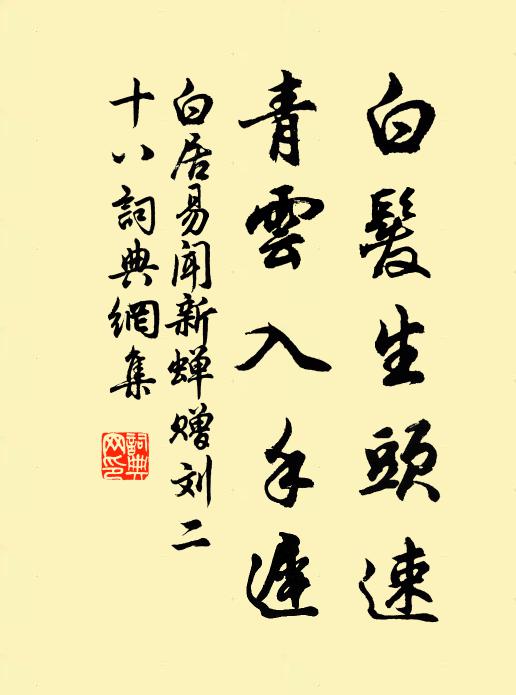 白髮生頭速
青雲入手遲
白居易闻新蝉赠刘二
十八詞典網集
詞典
网印